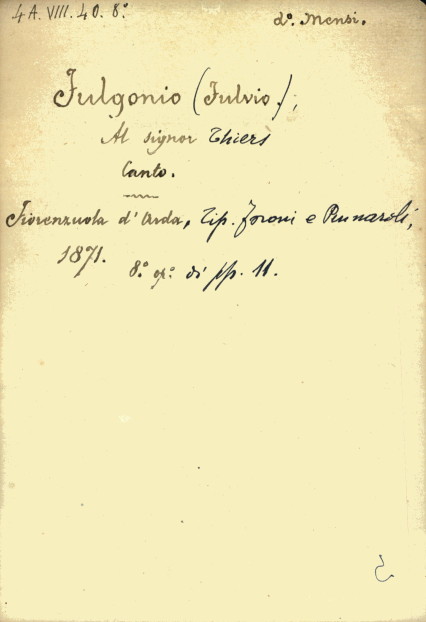 4 A. VIII. 40. 8°
d°. Mensi.
Fulgonio (Fulvio.),
Al signor Thiers
Canto.
Fiorenzuola d'Arda, Tip. Foroni e Pennaroli,
1871.
8° gr: di pp. 11.